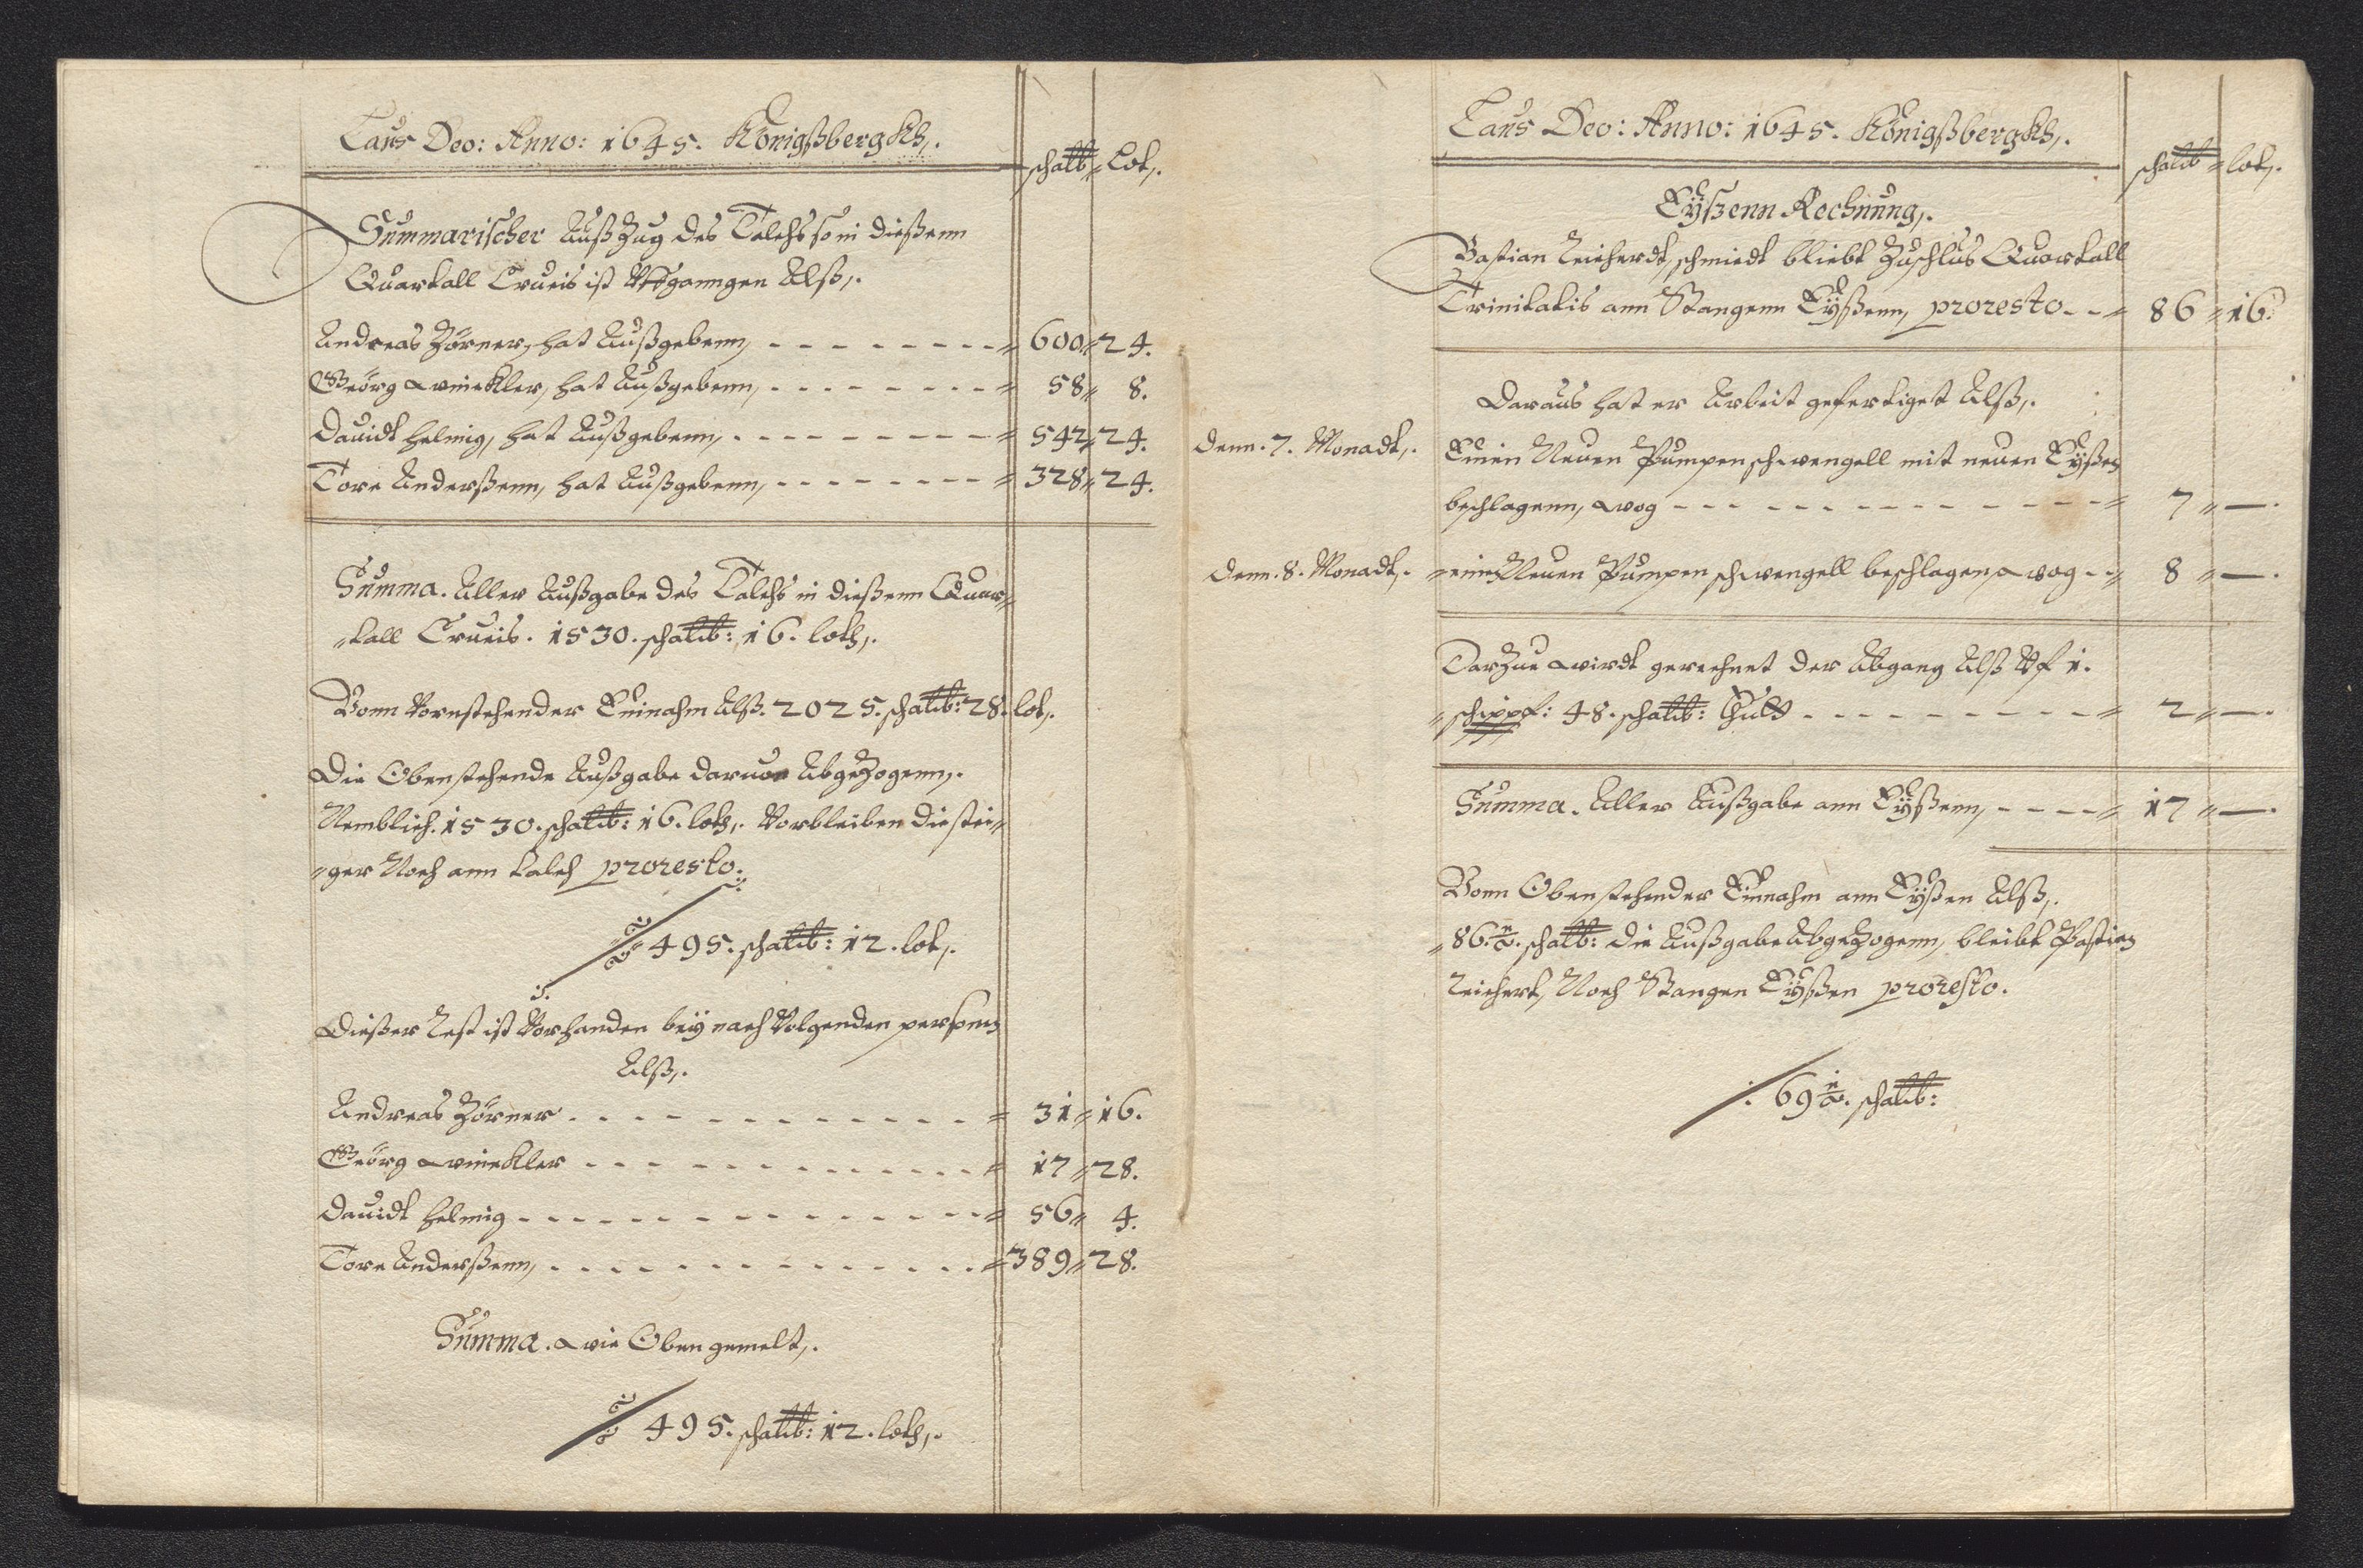 Laus Deo: Anno: 1645. Königßbergkh,.
schalb = Lot,.
Summarischer Außzug des Talchs so in dießenn
Quartall Crucis ist Vfgganngen Alß,.
Andreas Zörner, hat Außgebenn, - - - - - - - - = 600 = 24.
Geörg winckler, hat Außgebenn, - - - - - - - - = 58 = 8.
Dauidt Helmig, hat Außgebenn, - - - - - - - - = 542 = 24.
Tore Anderßenn, hat Außgebenn, - - - - - - - - = 328 = 24.
Summa. Aller Außgabe des Talchs in dießenn Quar=
=tall Crucis. 1530. schalb: 16. loth,.
Vonn Vornstehender Einnahm Alß. 2025. schalb: 28. lot,.
Die Obenstehende Außgabe daruon Abgezogenn,.
Nemblich. 1530. schalb: 16. loth,. Vorbleiben die stei=
=ger Noch ann talch proresto.
495. schalb: 12. lot,.
Dießer Rest ist Vorhanden beÿ nach Volgenden personen
Alß,.
Andreas Zörner - - - - - - - - - - = 31 = 16.
Geörg winckler - - - - - - - - - - = 17 = 28.
Dauidt Helmig - - - - - - - - - - = 56 = 4.
Tore Anderßenn, - - - - - - - - - - = 389 = 28.
Summa. wie Oben gemelt,.
495. schalb: 12. loth,.
Laus Deo: Anno: 1645. Königßbergkh,.
schalb = lot,.
Eÿßenn Rechnung,.
Bastian Reicherdt, schmiedt bliebt Zuschlus Quartall
Trinitatis ann Stangenn Eÿßenn, proresto - - = 86 = 16.
Daraus hat er Arbeit gefertiget Alß,.
Denn. 7. Monadt,. Einen Neuen Pumpenschwengell mit neuen Eÿßen
beschlagenn, wog - - - - - - - - - - = 7 = —.
Denn. 8. Monadt,. =einen Neuen Pumpen schwengell beschlagen, wog - = 8 = —.
Darzue wirdt gerechnet der Abgang Alß Vf 1.
=schippf: 48. schalb: - - - - - - - - = 2 = —.
Summa. Aller Außgabe ann Eÿßenn, - - - - = 17 = —.
Vonn Obenstehender Einnahm ann Eÿßen Alß,.
=86. ½. schalb: die Außgabe Abgezogenn, bleibt Bastian
Reichert, Noch Stangen Eÿßen proresto.
69 ½. schalb: